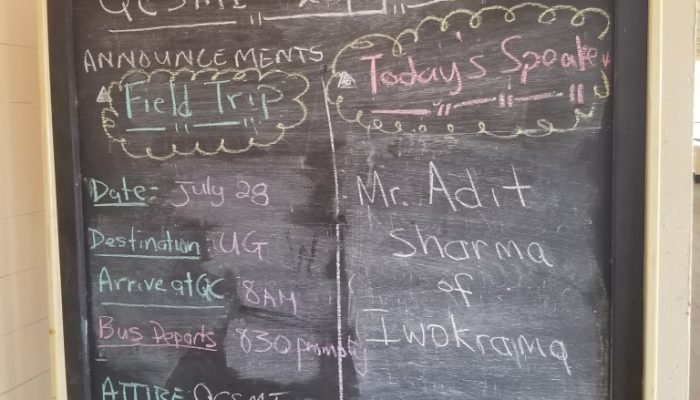 QCSMI
ANNOUNCEMENTS
Field Trip
Date:- July 28
Destination: UG
Arrive at QC 8AM
Bus Departs 830 promptly
ATTIRE: QCSMI
Today's Speaker
Mr. Adit
Sharma
of
Iwokrama